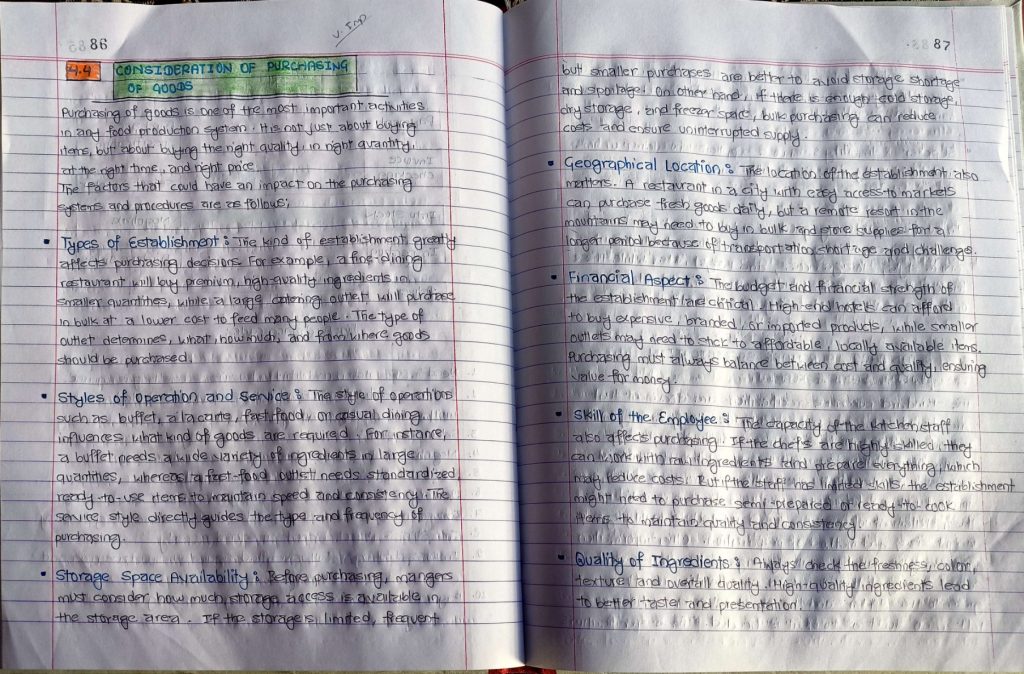 86
V. Imp
4.4 CONSIDERATION OF PURCHASING
OF GOODS
Purchasing of goods is one of the most important activities
in any food production system. It is not just about buying
items, but about buying the right quality, in right quantity,
at the right time, and right price.
The factors that could have an impact on the purchasing
systems and procedures are as follows;
• Types of Establishment : The kind of establishment greatly
affects purchasing decisions. For example, a fine-dining
restaurant will buy premium, high-quality ingredients in
smaller quantities, while a large catering outlet will purchase
in bulk at a lower cost to feed many people. The type of
outlet determines, what, how much, and from where goods
should be purchased.
• Styles of Operation and Service : The style of operations
such as buffet, a la carte, fast food, or casual dining
influences what kind of goods are required. For instance,
a buffet needs a wide variety of ingredients in large
quantities, whereas a fast-food outlet needs standardized
ready-to-use items to maintain speed and consistency. The
service style directly guides the type and frequency of
purchasing.
• Storage Space Availability : Before purchasing, mangers
must consider how much storage access is available in
the storage area. If the storage is limited, frequent
87
but smaller purchases are better to avoid storage shortage
and spoilage. On other hand, if there is enough cold storage,
dry storage, and freezer space, bulk purchasing can reduce
costs and ensure uninterrupted supply.
• Geographical Location : The location of the establishment also
matters. A restaurant in a city with easy access to markets
can purchase fresh goods daily, but a remote resort in the
mountains may need to buy in bulk and store supplies for a
longer period because of transportation shortage and challenges.
• Financial Aspect : The budget and financial strength of
the establishment are critical. High-end hotels can afford
to buy expensive, branded, or imported products, while smaller
outlets may need to stick to affordable, locally available items.
Purchasing must always balance between cost and quality, ensuring
value for money.
• Skill of the Employee : The capacity of the kitchen staff
also affects purchasing. If the chefs are highly skilled, they
can work with raw ingredients and prepare everything, which
may reduce costs. But if the staff has limited skills, the establishment
might need to purchase semi-prepared or ready-to-cook
items to maintain quality and consistency.
• Quality of Ingredients : Always check the freshness, colour,
texture, and overall quality. High-quality ingredients lead
to better taste and presentation.